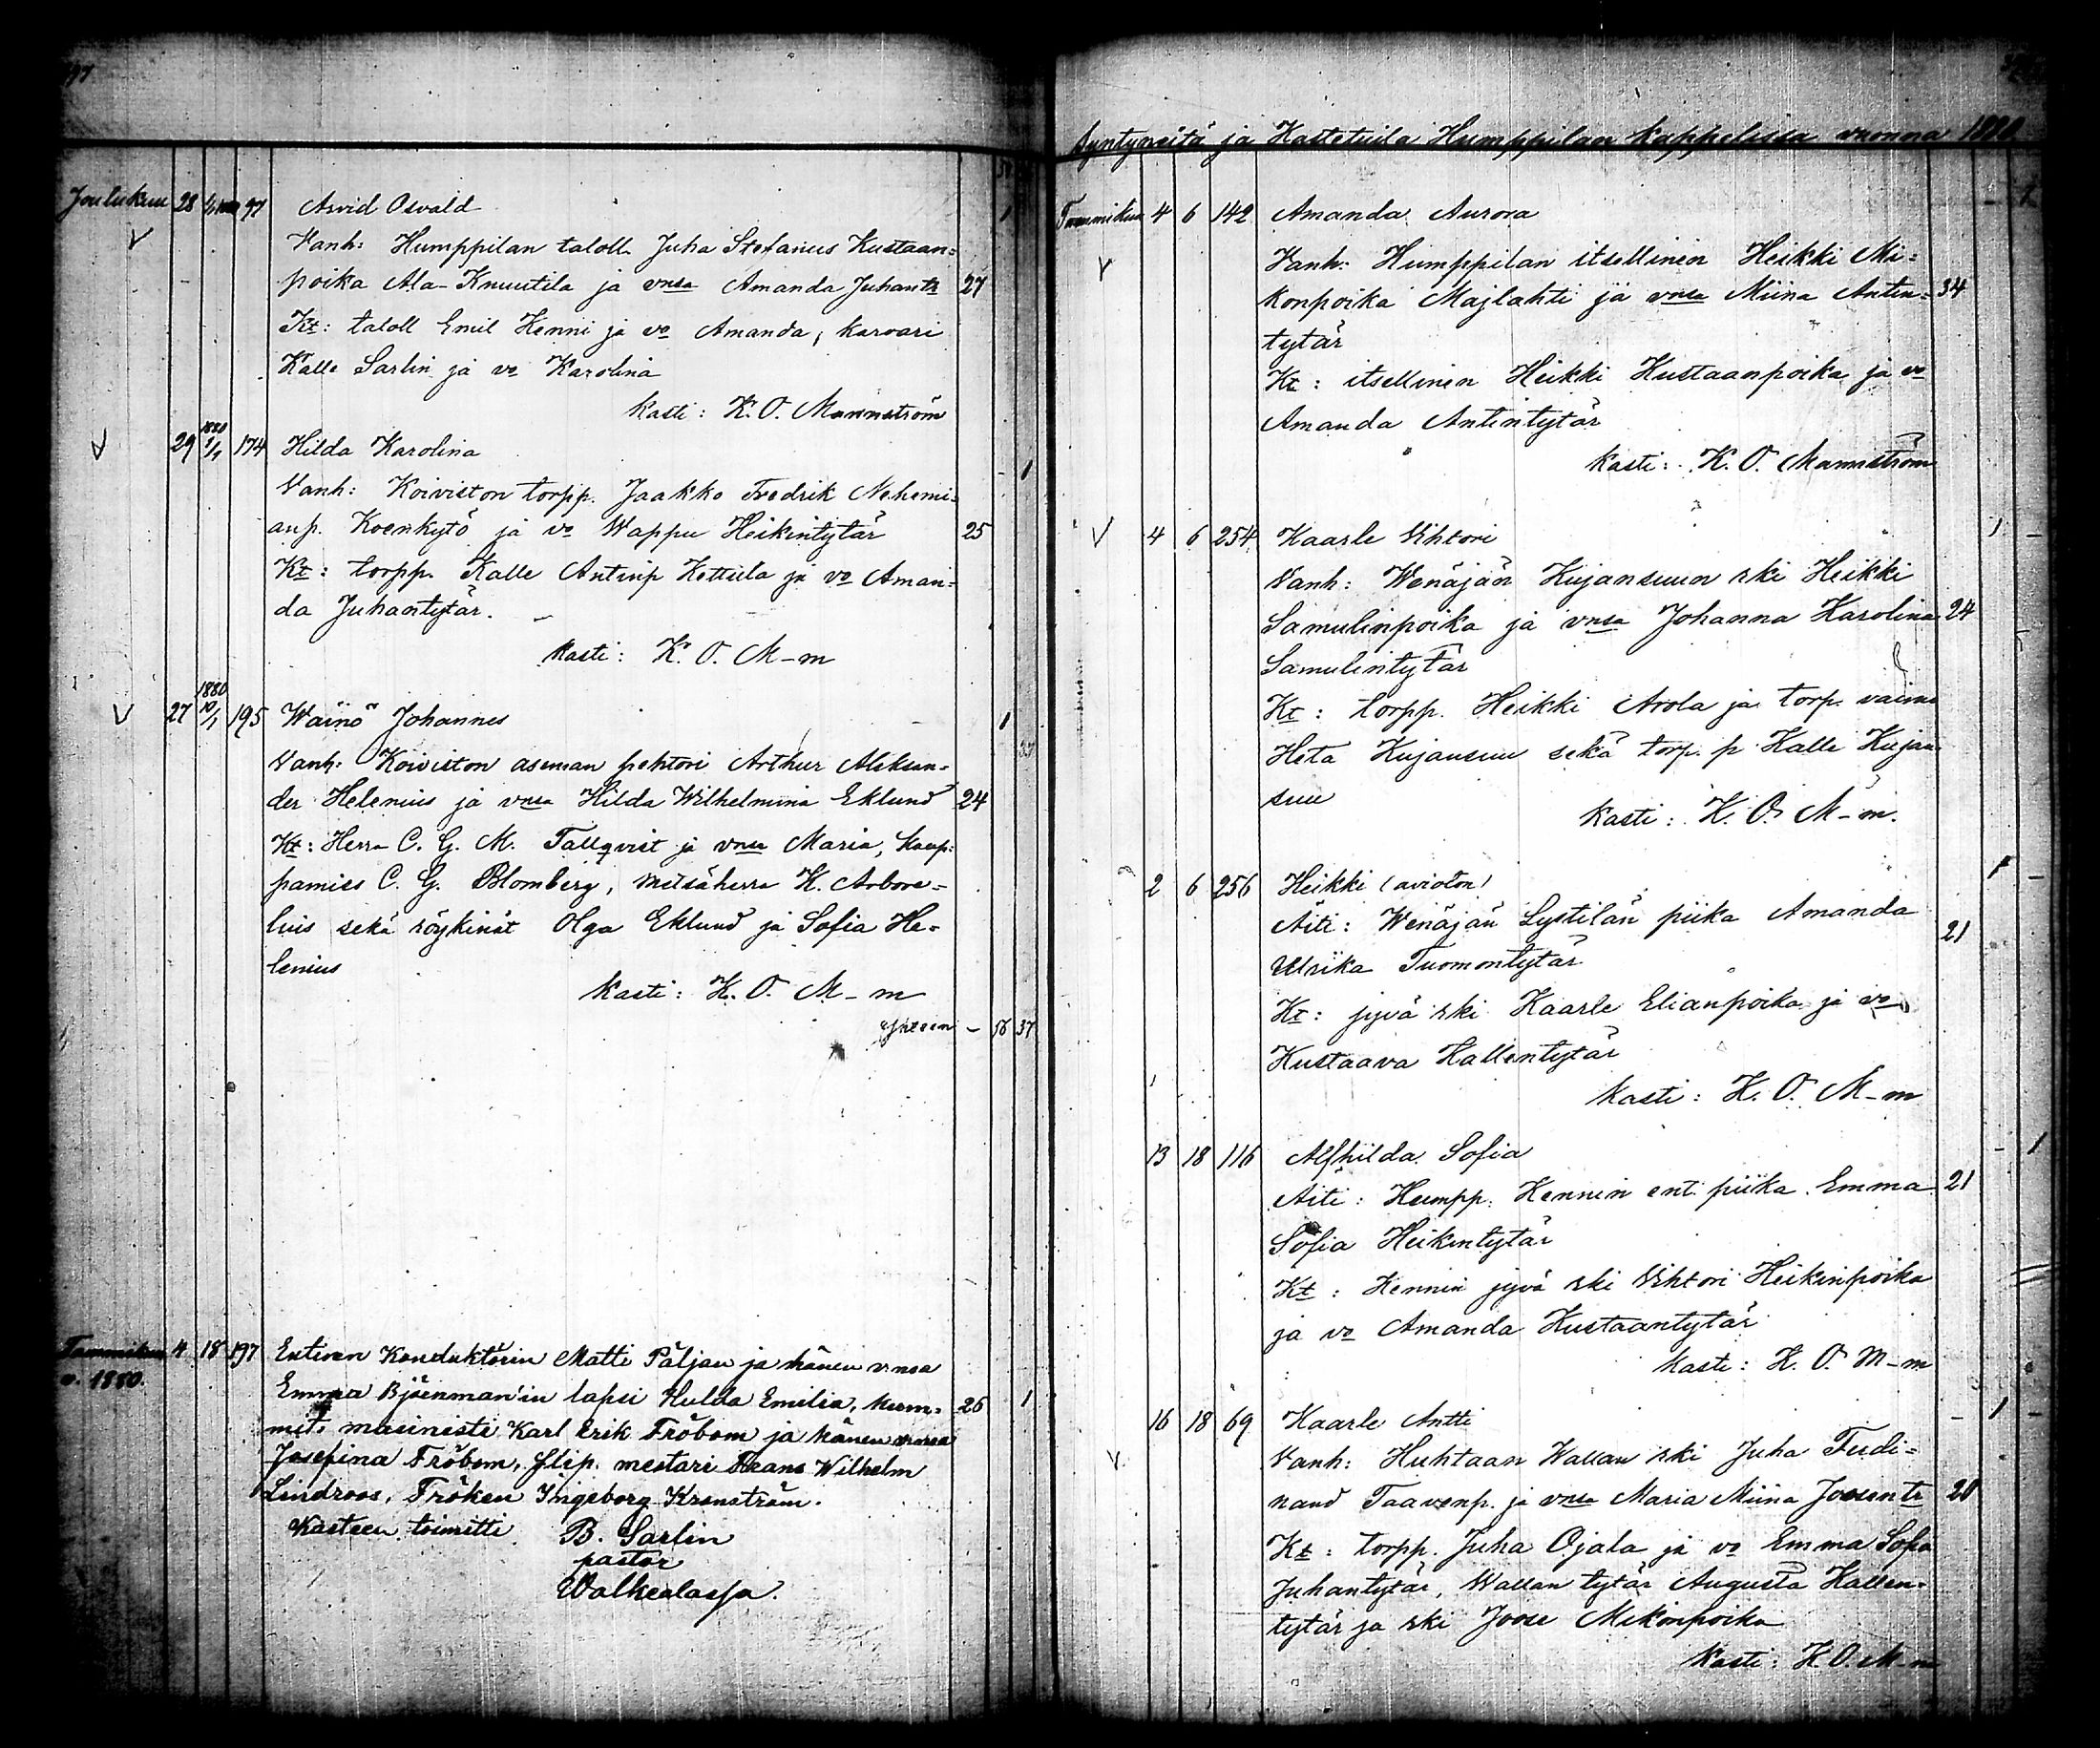 Joulukuu 28 97 Arvid Osvald 1
Vanh: Humppilan taloll. Juha Stefanus Kustaan=
poika Ala-Knuutila ja vnsa Amanda Juhantr 27
Kt: taloll Emil Henni ja vo Amanda, karvari
Kalle Sarlin ja vo Karolina
Kasti: K. O. Mannström
29 1880 1/1 174 Hilda Karolina 1
Vanh: Koiviston torpp. Jaakko Fredrik Nehemi=
anp. Koenkytö ja vo Wappu Heikintytär 25
Kt: torpp. Kalle Antinp Kettula ja vo Aman=
da Juhantytär.
Kasti: K. O. M-m
27 1880 10/1 195 Wäinö Johannes 1
Vanh: Koiviston aseman pehtori Arthur Aleksan=
der Helenius ja vnsa Hilda Wilhelmina Eklund 24
Kt: Herra C. G. M. Tallqvist ja vnsa Maria, kaup=
pamies C. G. Blomberg, metsäherra K. Arbore=
lius sekä röykinät Olga Eklund ja Sofia He=
lenius
Kasti: K. O. M-m
Yhteen - 56 37
Tammikuu 4 18 197 Entisen Konduktörin Matti Päljan ja hänen vnsa
v. 1880. Emma Björnman'in lapsi Hulda Emilia, Kum= 26 1
mit, masinisti Karl Erik Fröbom ja hänen vnsa
Josefina Fröbom, flip. mestari Frans Wilhelm
Lindroos, Fröken Ingeborg Kronström.
Kasteen toimitti B. Sarlin
pastor
Walkealassa.
Syntyneitä ja Kastetuita Humppilan kappelissa vuonna 1880
Tammikuu 4 6 142 Amanda Aurora - 1
Vanh: Humppilan itsellinen Heikki Mi=
konpoika Majlahti ja vnsa Miina Antin= 34
tytär
Kt: itsellinen Heikki Kustaanpoika ja vo
Amanda Antintytär
Kasti: K. O. Mannström
4 6 254 Kaarle Vihtori 1 -
Vanh: Wenäjän Kujansuun rki Heikki
Samulinpoika ja vnsa Johanna Karolina 24
Samulintytär
Kt: torpp. Heikki Arola ja torp. vaimo
Heta Kujansuu sekä torp. p Kalle Kujan
suu
Kasti: K. O. M-m.
2 6 256 Heikki (avioton) 1 -
Äiti: Wenäjän Lystilän piika Amanda
Ulriika Tuomontytär 21
Kt: jyvä rki Kaarle Elianpoika ja vo
Kustaava Kallentytär
Kasti: K. O. M-m
13 18 116 Alfhilda Sofia - 1
Äiti: Humpp. Hennin ent. piika Emma 21
Sofia Heikintytär
Kt: Hennin jyvä rki Vihtori Heikinpoika
ja vo Amanda Kustaantytär
Kasti: K. O. M-m
16 18 69 Kaarle Antti 1 -
Vanh: Huhtaan Wallan rki Juha Ferdi=
nand Taavenp. ja vnsa Maria Miina Joosentr 20
Kt: torpp. Juha Ojala ja vo Emma Sofia
Juhantytär, Wallan tytär Augusta Kallen=
tytär ja rki Joose Mikonpoika
Kasti: K. O. M-m